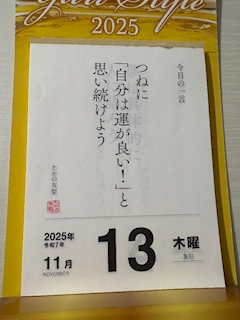 Style
2025
今日の一言
つねに
「自分は運が良い！」と
思い続けよう
たかの友梨
2025年
令和7年
11月
NOVEMBER
13
木曜
友引